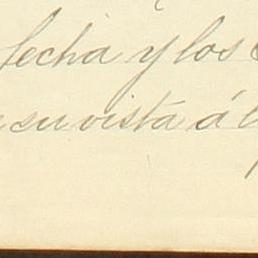 fecha y los
su vista á